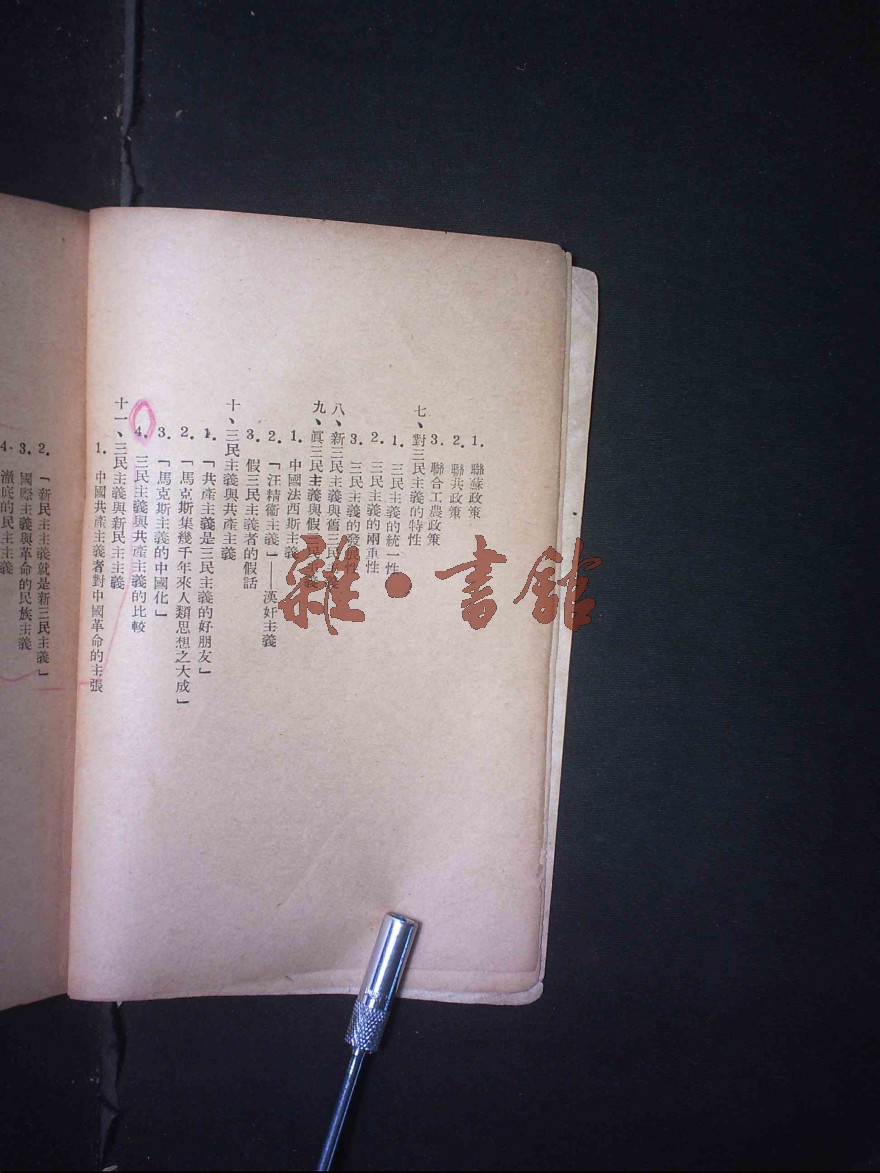 1. 聯蘇政策
2. 聯共政策
3. 聯合工農政策
七、對三民主義的特性
1. 三民主義的統一性
2. 三民主義的兩重性
3. 三民主義的發展性
八、新三民主義與舊三民主義
九、眞三民主義與假三民主義
1. 中國法西斯主義
2. 「汪精衞主義」——漢奸主義
3. 假三民主義者的假話
十、三民主義與共產主義
1. 「共產主義是三民主義的好朋友」
2. 「馬克斯集幾千年來人類思想之大成」
3. 「馬克斯主義的中國化」
4. 三民主義與共產主義的比較
十一、三民主義與新民主主義
1. 中國共產主義者對中國革命的主張
2. 「新民主主義就是新三民主義」
3. 國際主義與革命的民族主義
4. 澈底的民主主義
雜·書館